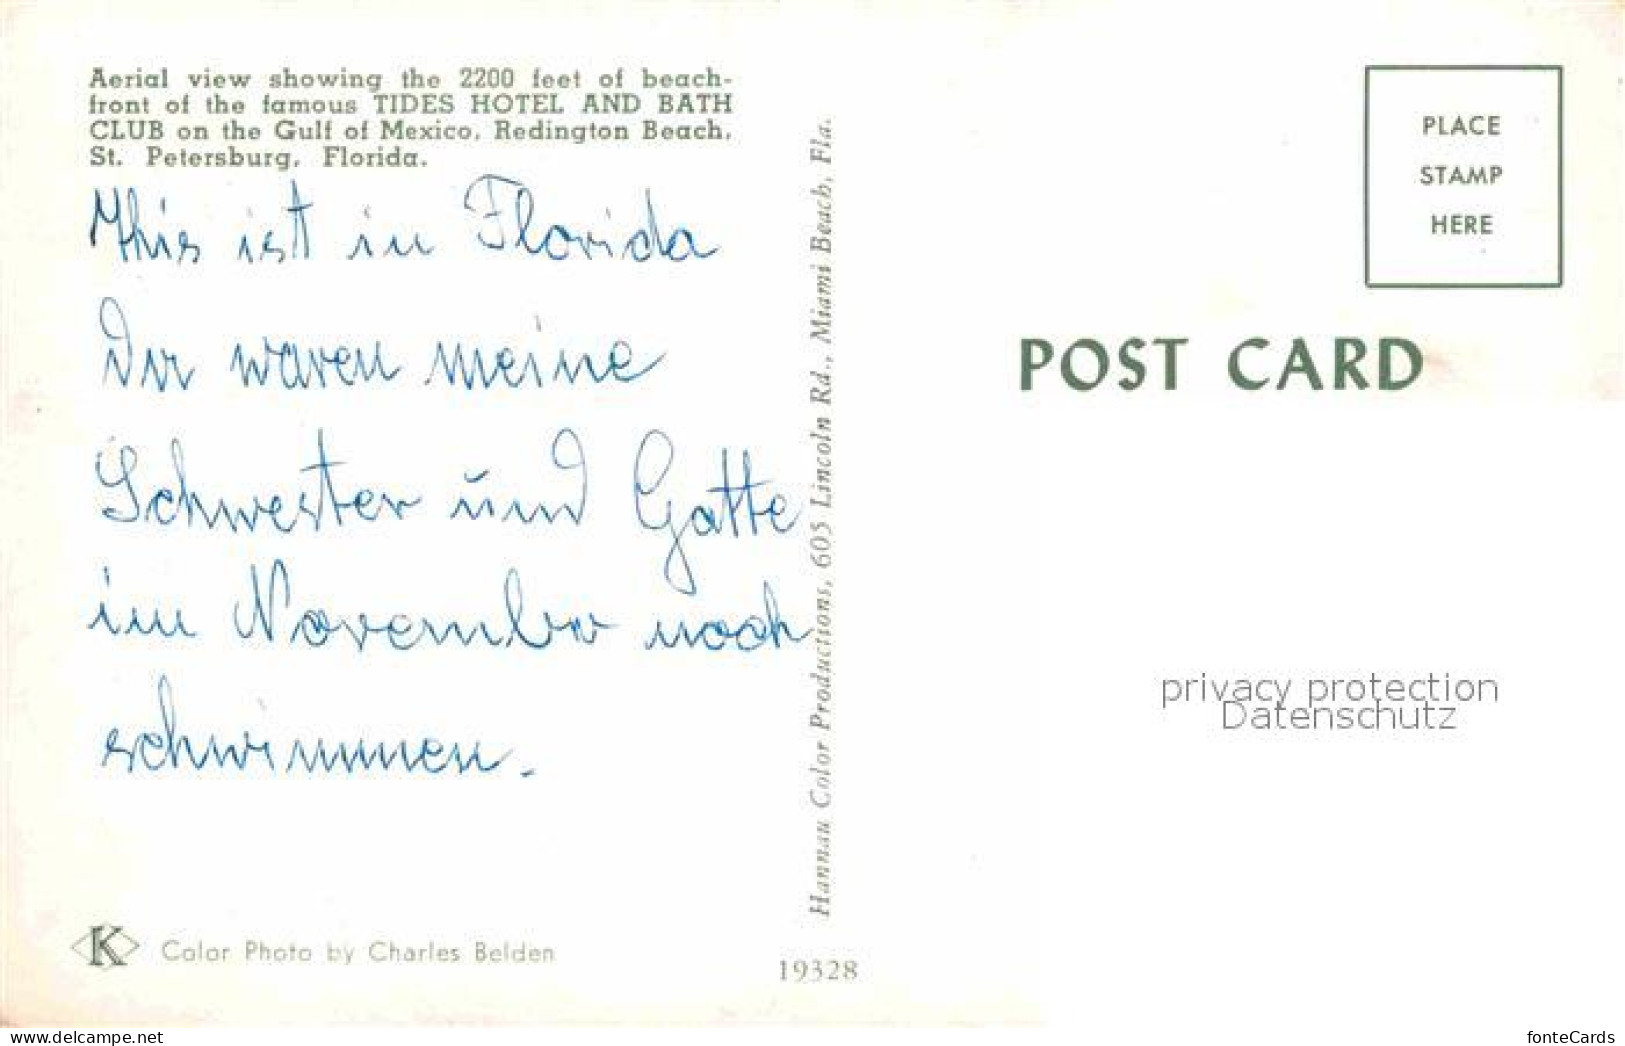 Aerial view showing the 2200 feet of beach-
front of the famous TIDES HOTEL AND BATH
CLUB on the Gulf of Mexico, Redington Beach,
St. Petersburg, Florida.
This ist in Florida
Dir waren meine
Schwester und Gatte
im November noch
schwimmen.
Color Photo by Charles Belden
K
19328
Hannau Color Productions, 605 Lincoln Rd., Miami Beach, Fla.
PLACE
STAMP
HERE
POST CARD
privacy protection
Datenschutz
www.delcampe.net
fonteCards